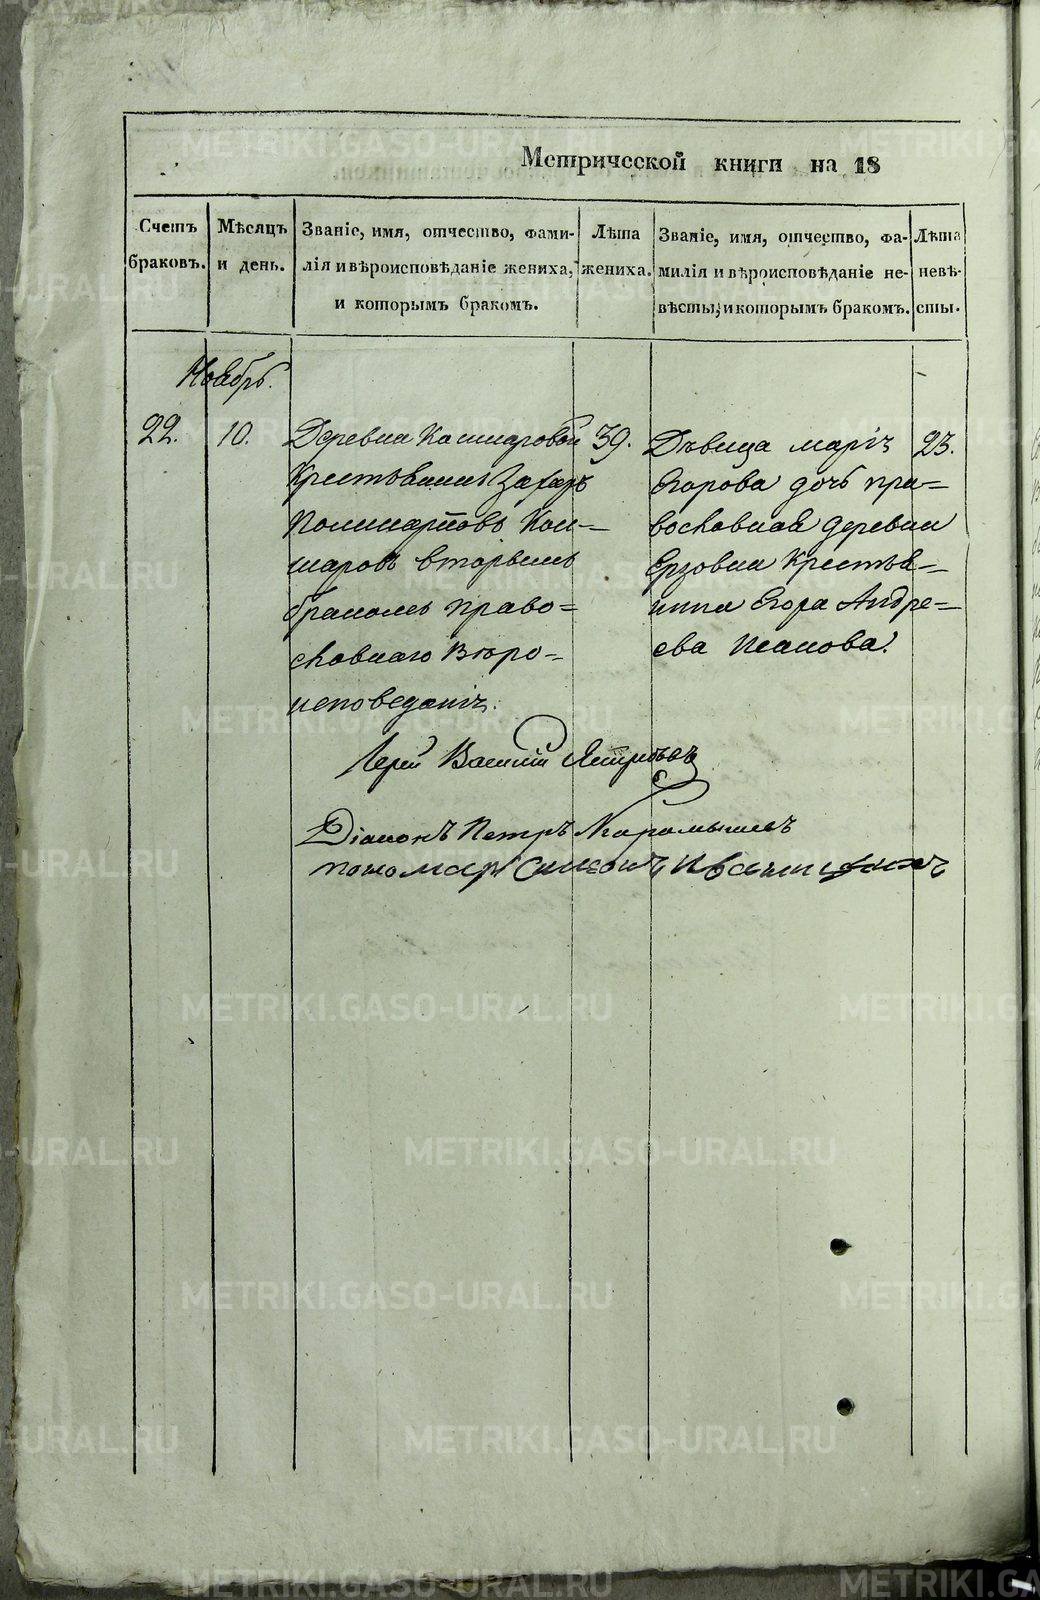 Метрической книги на 18
Счетъ браковъ.
Мѣсяцъ и день.
Званіе, имя, отчество, фами-
лія и вѣроисповѣданіе жениха,
и которымъ бракомъ.
Лѣта
жениха.
Званіе, имя, отчество, фа-
милія и вѣроисповѣданіе не-
вѣсты, и которымъ бракомъ.
Лѣта
невѣ-
сты.
Ноябрь.
22.
10.
Деревни Кашкаровой
Крестьянинъ Захаръ
шаровъ вторымъ
бракомъ право-
славнаго вѣро-
исповеданія.
39.
Дѣвица Марія
Егорова дочь пра-
вославная деревни
Ерзовки Крестья-
нина Егора Андре-
ева
23.
Іерей Василій
Діаконъ Петръ
пономарь Симеонъ
METRIKI.GASO-URAL.RU